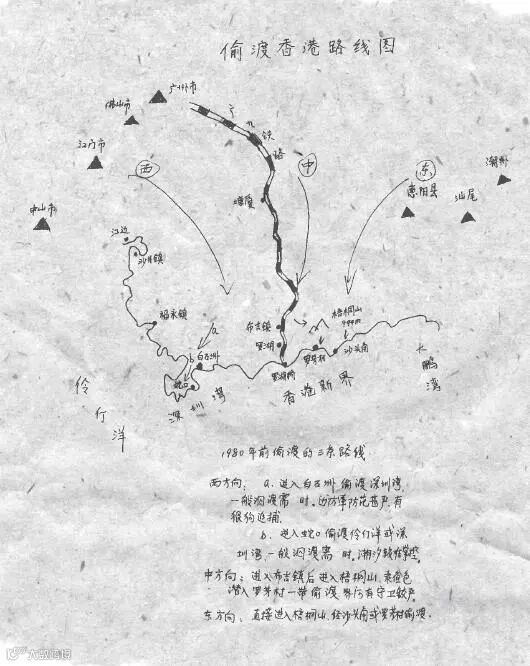 偷渡香港路线图
广州市
佛山市
江门市
中山市
广九铁路
西
中
东
潮州
汕尾
惠阳县
樟木
沙井镇
福永镇
a
b
白石洲
蛇口
深圳湾
伶仃洋
布吉镇
罗湖
罗湖桥
梧桐山
944m
罗芳村
沙头角
香港新界
大鹏湾
1980年前偷渡的三条路线
西方向: a. 进入白石洲偷渡深圳湾,
一般泅渡需 时.边防军防范甚严,有
狼狗追捕.
b. 进入蛇口偷渡伶仃洋或深
圳湾,一般泅渡需 时.潮汐
中方向: 进入布吉镇后进入梧桐山,乘夜色
潜入罗芳村一带偷渡 界河有守卫较严.
东方向: 直接进入梧桐山,经沙头角或罗芳村偷渡.
大取造物